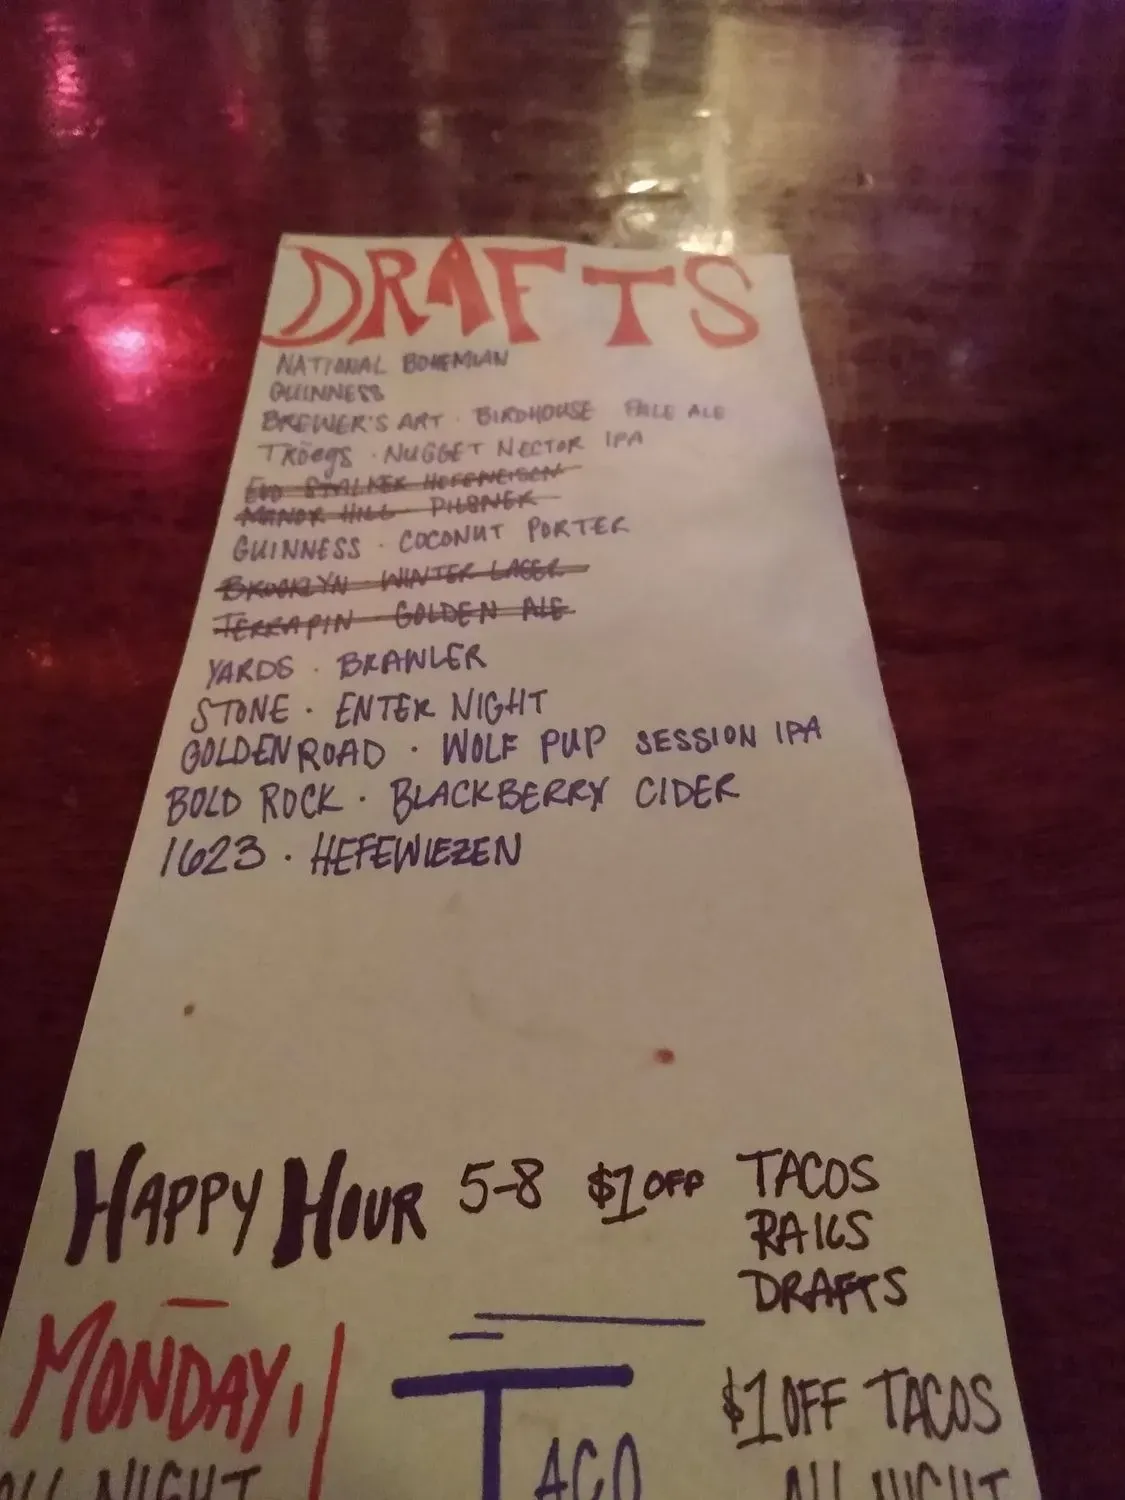 DRAFTS
NATIONAL BOHEMIAN
GUINNESS
BREWER'S ART · BIRDHOUSE PALE ALE
TRÖEGS · NUGGET NECTOR IPA
MANOR HILL PILSNER
GUINNESS · COCONUT PORTER
BROOKLYN WINTER LAGER
TERRAPIN GOLDEN ALE
YARDS · BRAWLER
STONE · ENTER NIGHT
GOLDEN ROAD · WOLF PUP SESSION IPA
BOLD ROCK · BLACKBERRY CIDER
1623 · HEFEWIEZEN
HAPPY HOUR 5-8 $1 OFF TACOS
RAILS
DRAFTS
MONDAY,
TACO
$1 OFF TACOS
ALL NIGHT
ALL NIGHT